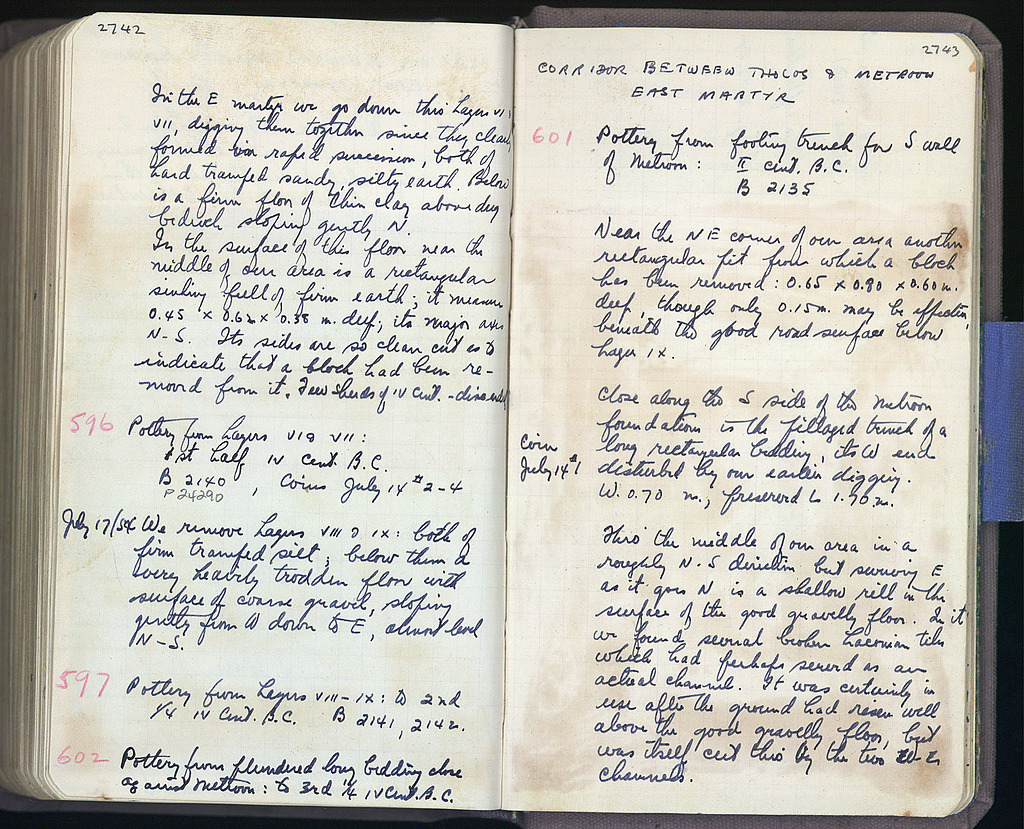 2742
In the E martyr we go down thru Layers VI &
VII, digging them together since they clearly
formed in rapid succession, both of
hard tramped sandy, silty earth. Below
is a firm floor of thin clay above dug
bedrock sloping gently N.
In the surface of this floor near the
middle of our area is a rectangular
sinking full of firm earth; it measures
0.45 x 0.62 x 0.38 m. deep; its major axis
N-S. Its sides are so clean cut as to
indicate that a block had been re-
moved from it. Few sherds of IV cent. - discarded
596 Pottery from Layers VI & VII:
1st half IV cent B.C.
B 2140, Coins July 14 #2-4
P 24290
July 17/54 We remove Layers VIII & IX: both of
firm tramped silt; below them a
very heavily trodden floor with
surface of coarse gravel, sloping
gently from W down to E, almost level
N-S.
597 Pottery from Layers VIII-IX: to 2nd
1/4 IV Cent. B.C. B 2141, 2142.
602 Pottery from plundered long bedding close
against Metroon: to 3rd 1/4 IV Cent. B.C.
2743
CORRIDOR BETWEEN THOLOS & METROON
EAST MARTYR
601 Pottery from footing trench for S wall
of Metroon: II cent. B.C.
B 2135
Near the NE corner of our area another
rectangular pit from which a block
has been removed: 0.65 x 0.80 x 0.60 m.
deep, though only 0.15 m. may be effective,
beneath the good road surface below
Layer IX.
Close along the S side of the Metroon
foundations is the pillaged trench of a
Coin long rectangular bedding, its W end
July 14 #1 disturbed by our earlier digging.
W. 0.70 m., preserved L 1.90 m.
Thro the middle of our area in a
roughly N-S direction but swerving E
as it goes N is a shallow rill in the
surface of the good gravelly floor. In it
we found several broken Laconian tiles
which had perhaps served as an
actual channel. It was certainly in
use after the ground had risen well
above the good gravelly floor, but
was itself cut thro by the two
channels.